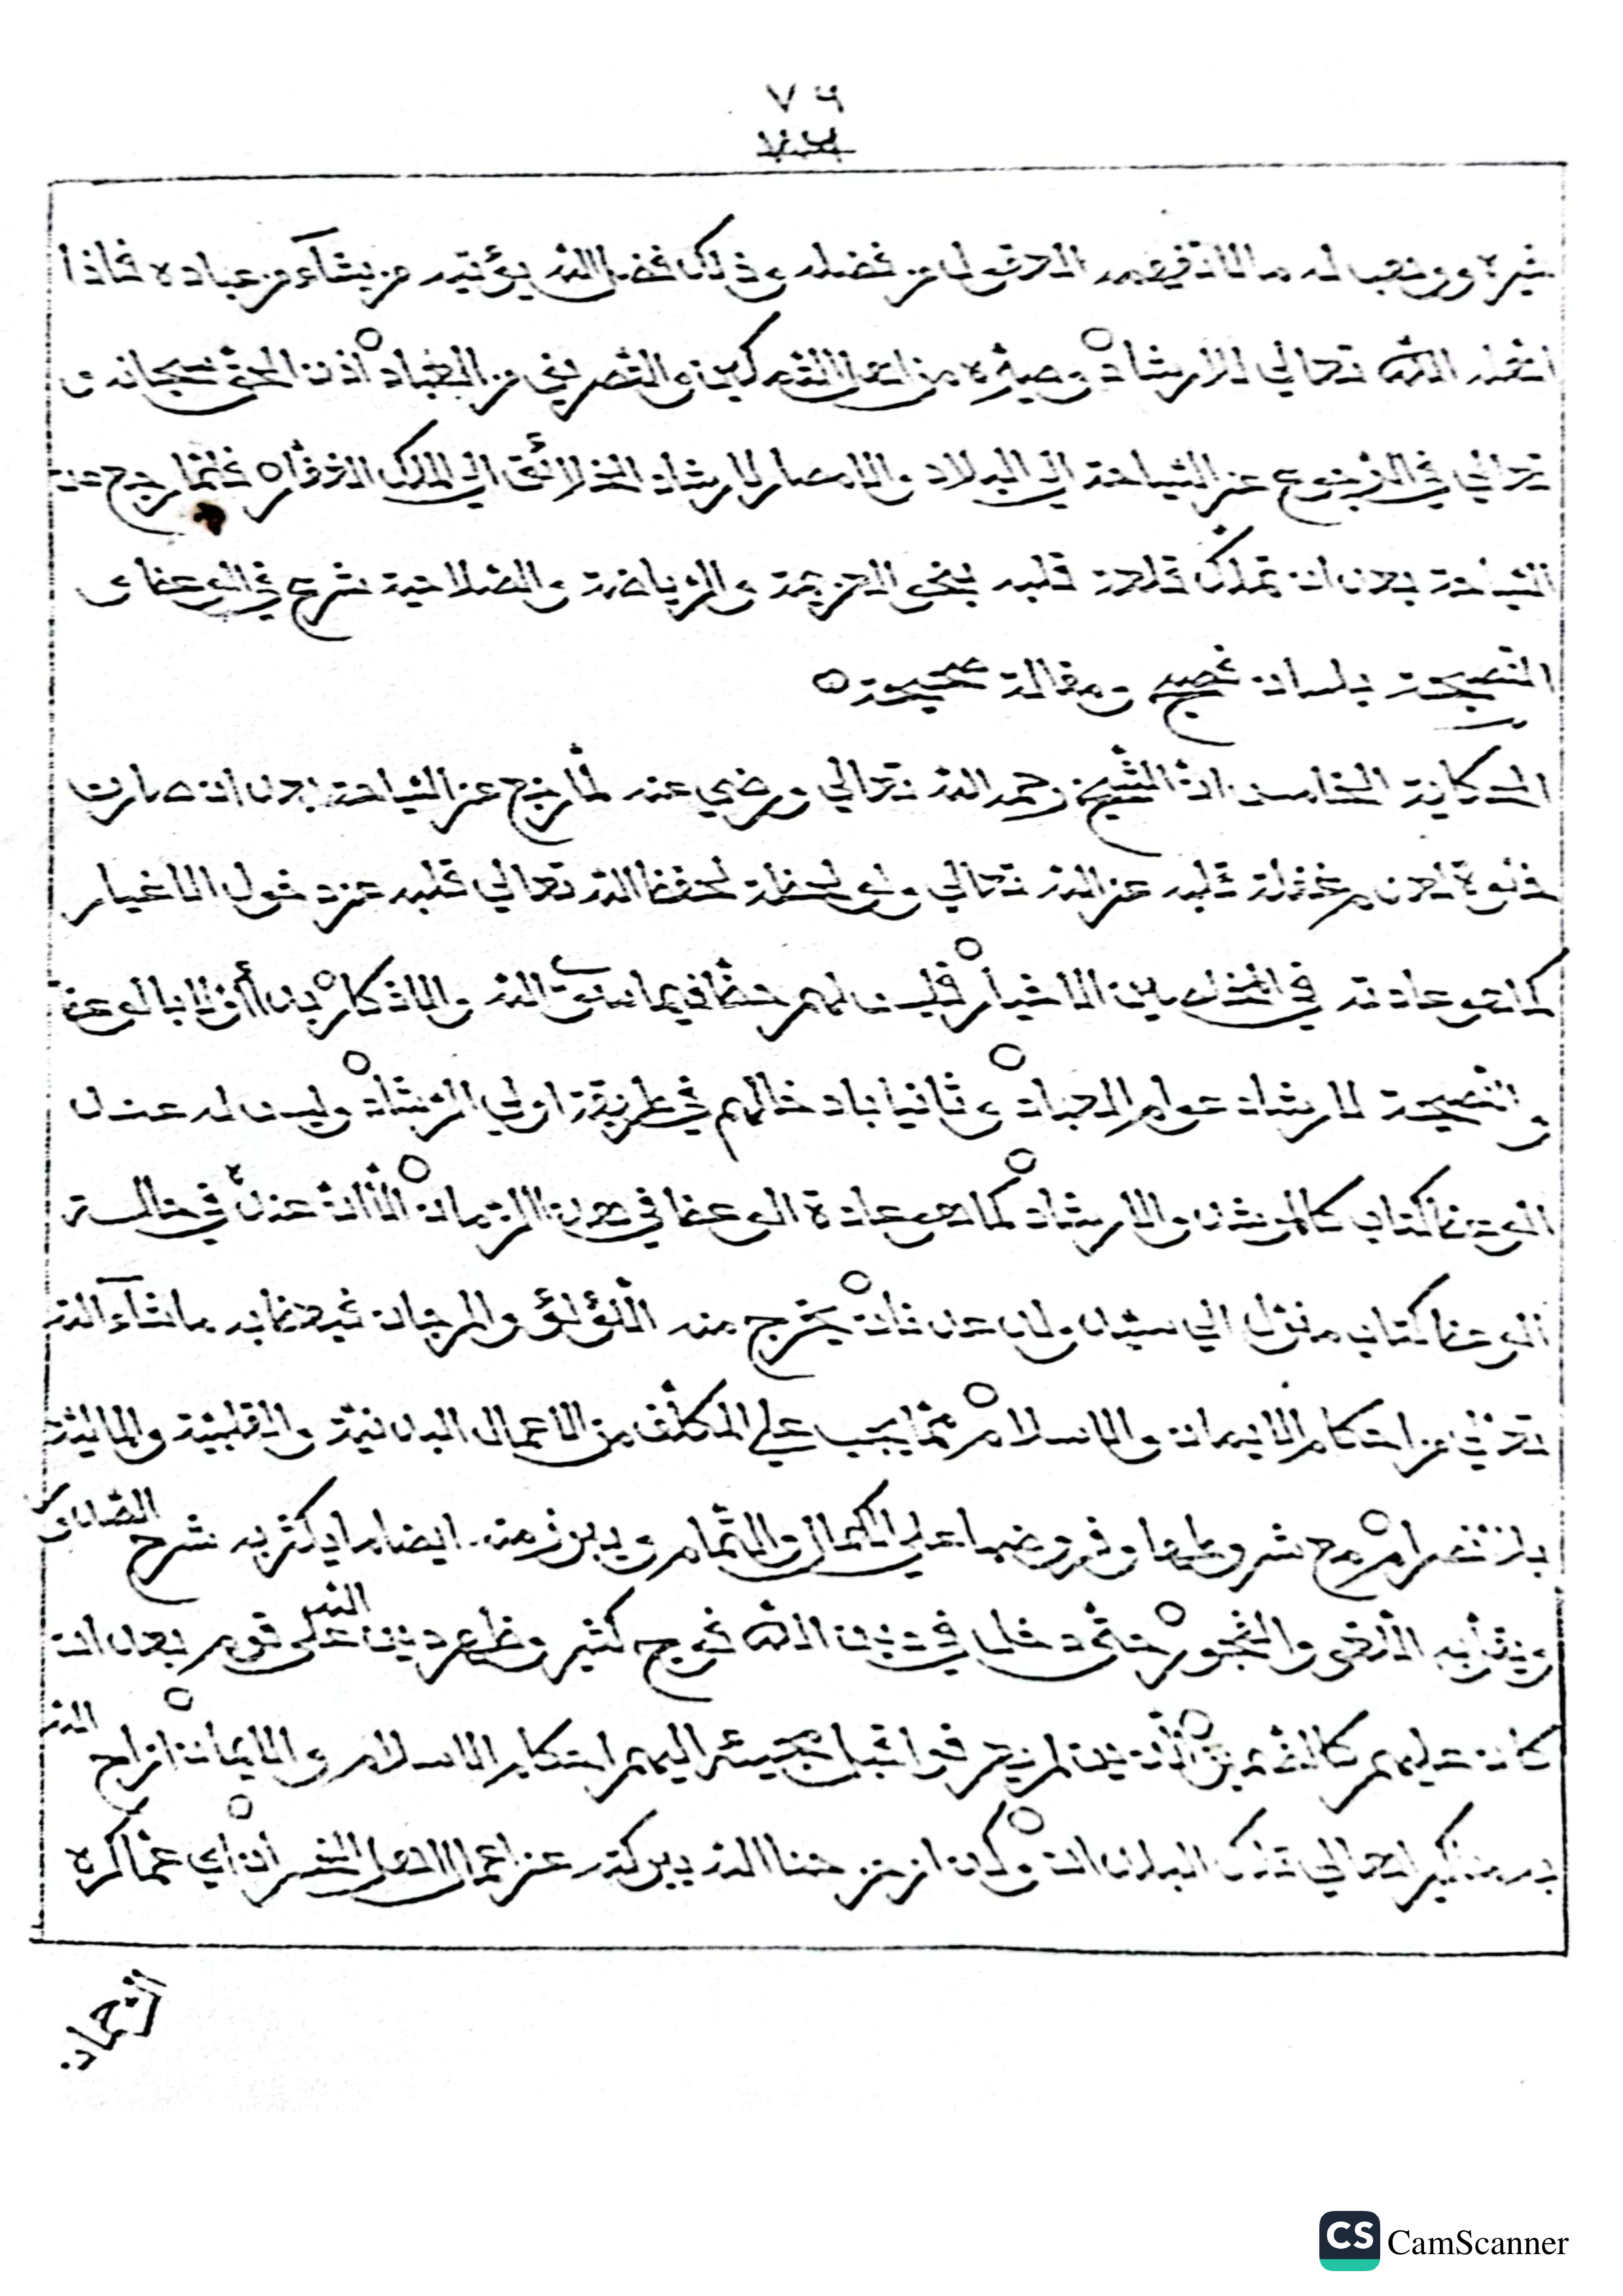 ٧٦
غيره ووهب له ما لا تفهمه العقول من فضله وذلك فضل الله يؤتيه من يشاء من عباده فاذا
اهله الله تعالي للارشاد وصيره من اهل التمكين والتصريف من العباد اذن الحق سبحانه و
تعالي في الرجوع عن السياحة الي البلاد والامصار لارشاد الخلائق الي الملك الغفار فلما رجع عن
السياحة بعد ان تملك قلعة قلبه بنحو العزيمة والرياضة والصلاحية شرع في الوعظ و
النصيحة بلسان فصيح ومقالة صحيحة
الحكاية الخامس ان الشيخ رحمه الله تعالي ورضي عنه لما رجع عن السياحة بعد ان صارت
خلوة بعد غفلة قلبه عن الله تعالي ولو لحظة لحفظ الله تعالي قلبه عن دخول الاغيار
كما هو عادته في المخل بين الاخيار فليس لهم حظ فيما سوي الله والاذكار بدا أولا بالوعظ
والنصيحة لارشاد عوام العباد وثانيا بادخالهم في طريقة اولي الرشاد وليس له عند
الوعظ كتاب كالمرشد والارشاد كما هو عادة الوعظ في هذا الزمان الا ان عنده في حالة
الوعظ كتاب منزل الي سيد ولد عدنان يخرج منه اللؤلؤ والمرجان فيعظ به ما شاء الله
تعالي من احكام الايمان والاسلام مما يجب علي المكلف من الاعمال البدنية والقلبية والمالية
بالتفصيل مع شروطها وفروضها علي الكمال والتمام ويبرز منه ايضا ما يكثر به شرح الصدور
ويقل به اللغو والفجور حتي دخل في دين الله فوج كثير وظهر دين النبي علي قوم بعد ان
كان عليهم كالغريب الذين لم يعرفوا قبل مجيئه اليهم احكام الاسلام والايمان ازاح الله
به مناكير اهالي تلك البلدان وكان ازمن حفظ الله ببركته عن اعمال اهل الخسران اي عما كره
الرحمان
CS CamScanner